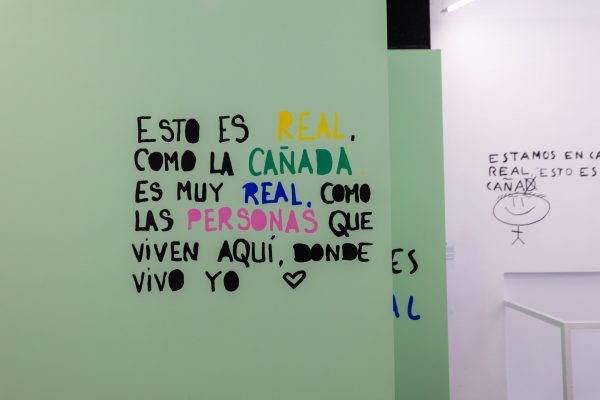 ESTO ES REAL.
COMO LA CAÑADA.
ES MUY REAL. COMO
LAS PERSONAS QUE
VIVEN AQUÍ, DONDE
VIVO YO
ES
AL
ESTAMOS EN CA
REAL, ESTO ES
CAÑAD